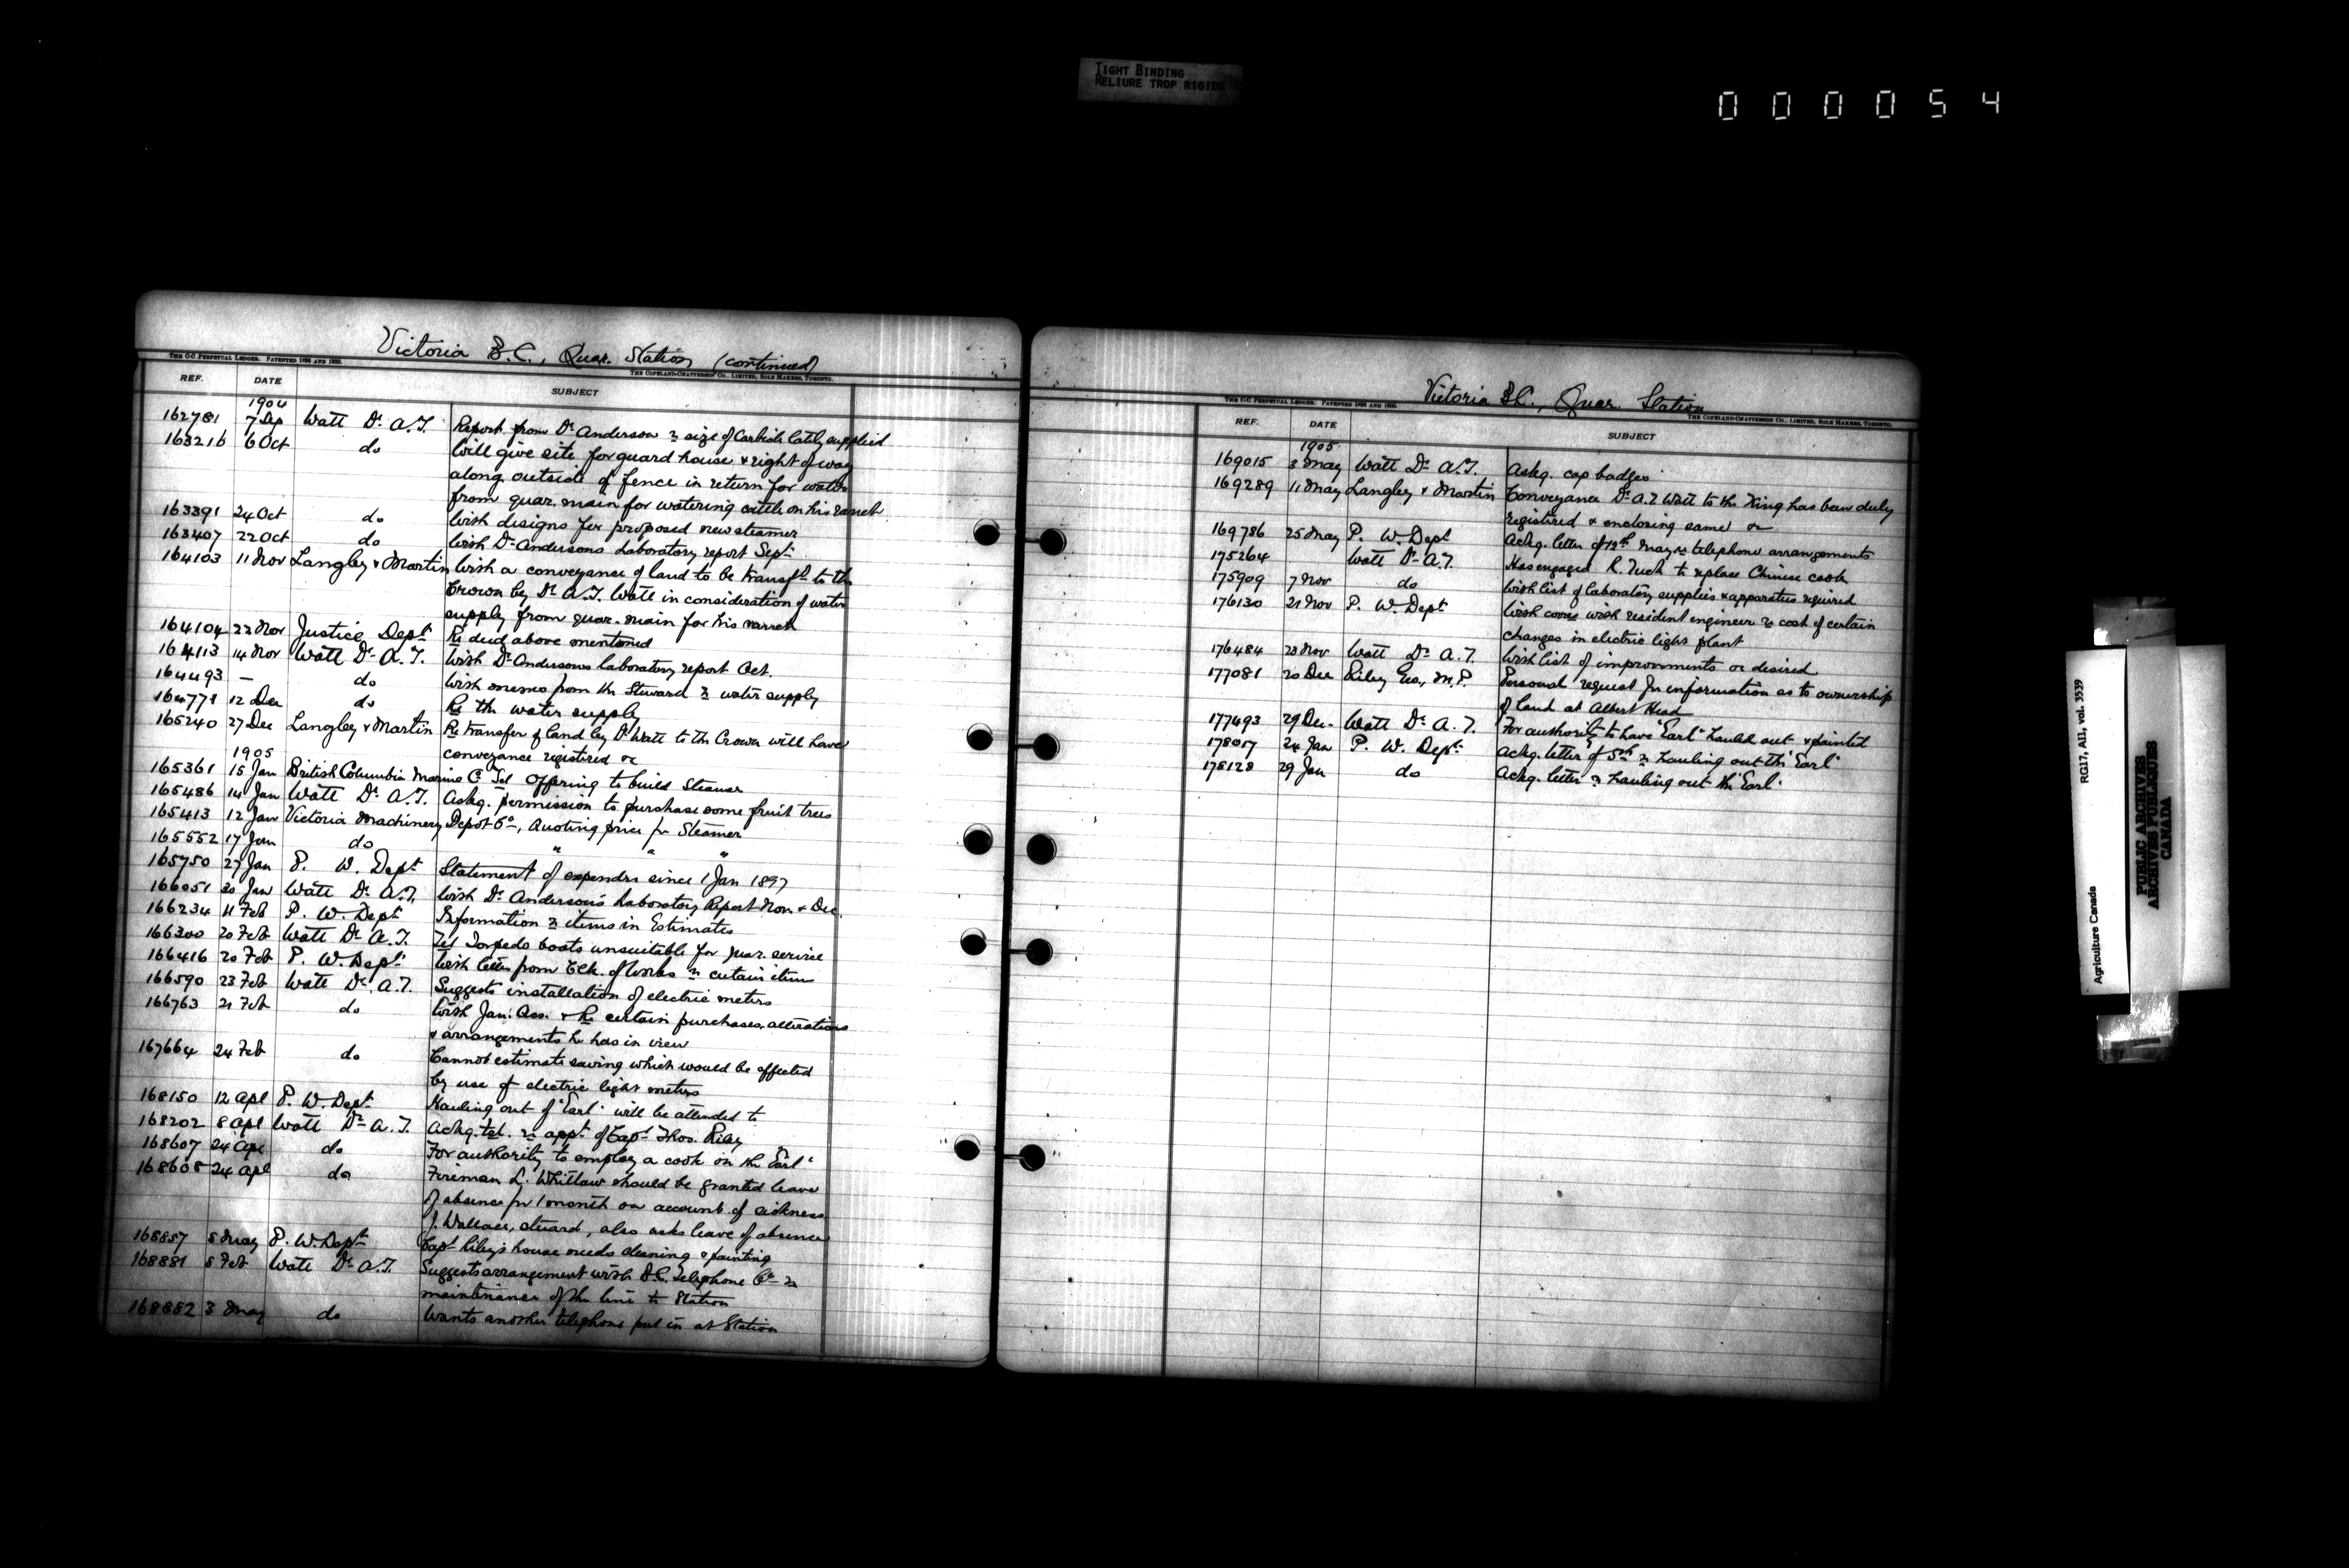 TIGHT BINDING
RELIURE TROP RIGIDE
000054
Victoria B.C., Quar. Station (continued)
THE C-C PERPETUAL LEDGER. PATENTED 1896 AND 1900.
THE COPELAND-CHATTERSON CO., LIMITED, SOLE MAKERS, TORONTO.
REF. DATE SUBJECT
1904
162781 7 Sep Watt Dr. A.T. Report from Dr. Anderson re size of Carbide lately supplied
163216 6 Oct do Will give site for guard house & right of way
along outside of fence in return for water
from quar. main for watering cattle on his ranch
163391 24 Oct do With designs for proposed new steamer
163407 22 Oct do With Dr. Andersons Laboratory report Sept.
164103 11 Nov Langley & Martin With a conveyance of land to be transfd to the
Crown by Dr. A.T. Watt in consideration of water
supply from quar. main for his ranch
164104 22 Nov Justice Dept Re deed above mentioned
164113 14 Nov Watt Dr. A.T. With Dr. Andersons laboratory report Oct.
164493 — do With memo from the Steward re water supply
164771 12 Dec do Re the water supply
165240 27 Dec Langley & Martin Re transfer of land by Dr. Watt to the Crown will have
1905 conveyance registered &c
165361 15 Jan British Columbia Marine Co Tel Offering to build Steamer
165486 14 Jan Watt Dr. A.T. Askg. permission to purchase some fruit trees
165413 12 Jan Victoria Machinery Depot Co, Quoting price for Steamer
165552 17 Jan do " " "
165750 27 Jan P. W. Dept Statement of expendre since 1 Jan 1897
166051 30 Jan Watt Dr. A.T. With Dr. Anderson's Laboratory Report Nov. & Dec.
166234 11 Feb P. W. Dept Information re items in Estimates
166300 20 Feb Watt Dr. A.T. Tel Torpedo boats unsuitable for quar. service
166416 20 Feb P. W. Dept. With letter from Clk. of Works re certain items
166590 23 Feb Watt Dr. A.T. Suggests installation of electric meters
166763 21 Feb do With Jan. Acs. & Re certain purchases, alterations
& arrangements he has in view
167664 24 Feb do Cannot estimate saving which would be effected
by use of electric light meters
168150 12 Apl P. W. Dept. Hauling out of "Earl" will be attended to
168202 8 Apl Watt Dr. A.T. Ackg. tel. re appt. of Capt Thos. Riley
168607 24 Apl do For authority to employ a cook on the "Earl"
168608 24 Apl do Fireman L. Whitlaw should be granted leave
of absence for 1 month on account of sickness
J. Wallace, steward, also asks leave of absence
168857 5 May P. W. Dept Capt Riley's house needs cleaning & painting
168881 5 Feb Watt Dr. A.T. Suggests arrangement with B.C. Telephone Co re
maintenance of the line to Station
168882 3 May do Wants another telephone put in at Station
Victoria B.C., Quar. Station
THE C-C PERPETUAL LEDGER. PATENTED 1896 AND 1900.
THE COPELAND-CHATTERSON CO., LIMITED, SOLE MAKERS, TORONTO.
REF. DATE SUBJECT
1905
169015 3 May Watt Dr. A.T. Askg. cap badges
169289 11 May Langley & Martin Conveyance Dr. A.T. Watt to the King has been duly
registered & enclosing same &c
169786 25 May P. W. Dept Ackg. letter of 13th May re telephone arrangements
175264 Watt Dr. A.T. Has engaged R. Tuck to replace Chinese cook
175909 7 Nov do With list of laboratory supplies & apparatus required
176130 21 Nov P. W. Dept With corres with resident engineer re cost of certain
changes in electric light plant
176484 23 Nov Watt Dr. A.T. With list of improvements &c desired
177081 20 Dec Riley Geo., M.P. Personal request for information as to ownership
of land at Albert Head
177493 29 Dec. Watt Dr. A.T. For authority to have "Earl" hauled out & painted
178017 24 Jan P. W. Dept. Ackg. letter of 5th re hauling out the "Earl"
178128 29 Jan do Ackg. letter re hauling out the "Earl"
Agriculture Canada
RG17, AII, vol. 3539
PUBLIC ARCHIVES
ARCHIVES PUBLIQUES
CANADA